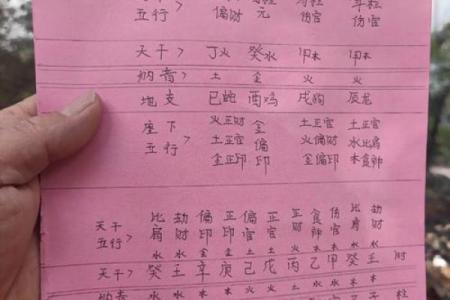 五行> 偏财 元 伤官 伤官
天干> 丁火 癸水 甲木 甲木
纳音> 土 金 火 火
地支> 巳蛇 酉鸡 戌狗 辰龙
座下五行> 火正财 金 土正官 土正官
土正官 偏 火偏财 水比肩
金正印 印 金偏印 木食神
天干五行> 比肩 劫财 偏印 正印 偏官 正官 正财 食神 伤官 比肩 劫财
水 水 金 金 土 土 火 木 木 水 水
天干> 癸 壬 辛 庚 己 戊 丙 乙 甲 癸 壬 时
纳音 柱